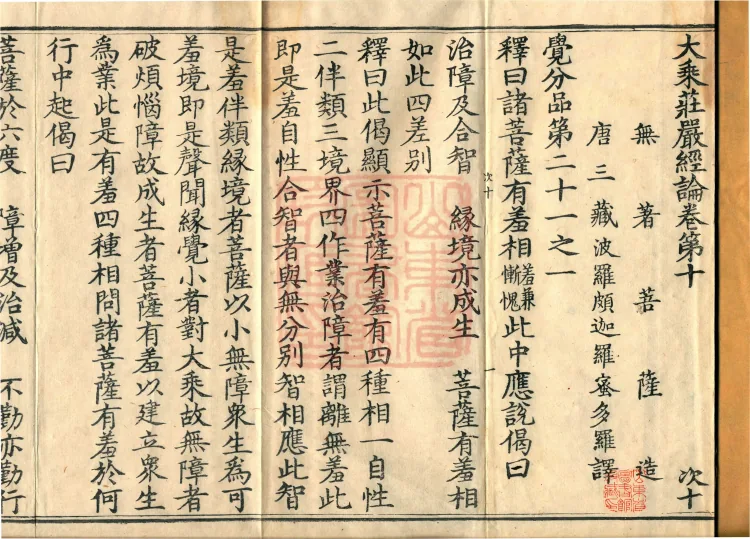 大乘莊嚴經論卷第十 次十
無著菩薩造
唐三藏波羅頗迦羅蜜多羅譯
覺分品第二十一之一
釋曰諸菩薩有羞相羞兼慚愧此中應說偈曰
治障及合智 緣境亦成生 菩薩有羞相
次十 一
如此四差別
釋曰此偈顯示菩薩有羞有四種相一自性
二伴類三境界四作業治障者謂離無羞此
即是羞自性合智者與無分別智相應此智
是羞伴類緣境者菩薩以小無障衆生爲可
羞境即是聲聞緣覺小者對大乘故無障者
破煩惱障故成生者菩薩有羞以建立衆生
爲業此是有羞四種相問諸菩薩有羞於何
行中起偈曰
菩薩於六度 障增及治減 不勤亦勤行